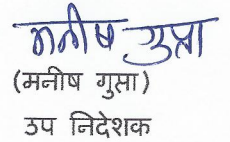 मनीष गुप्ता
(मनीष गुप्ता)
उप निदेशक